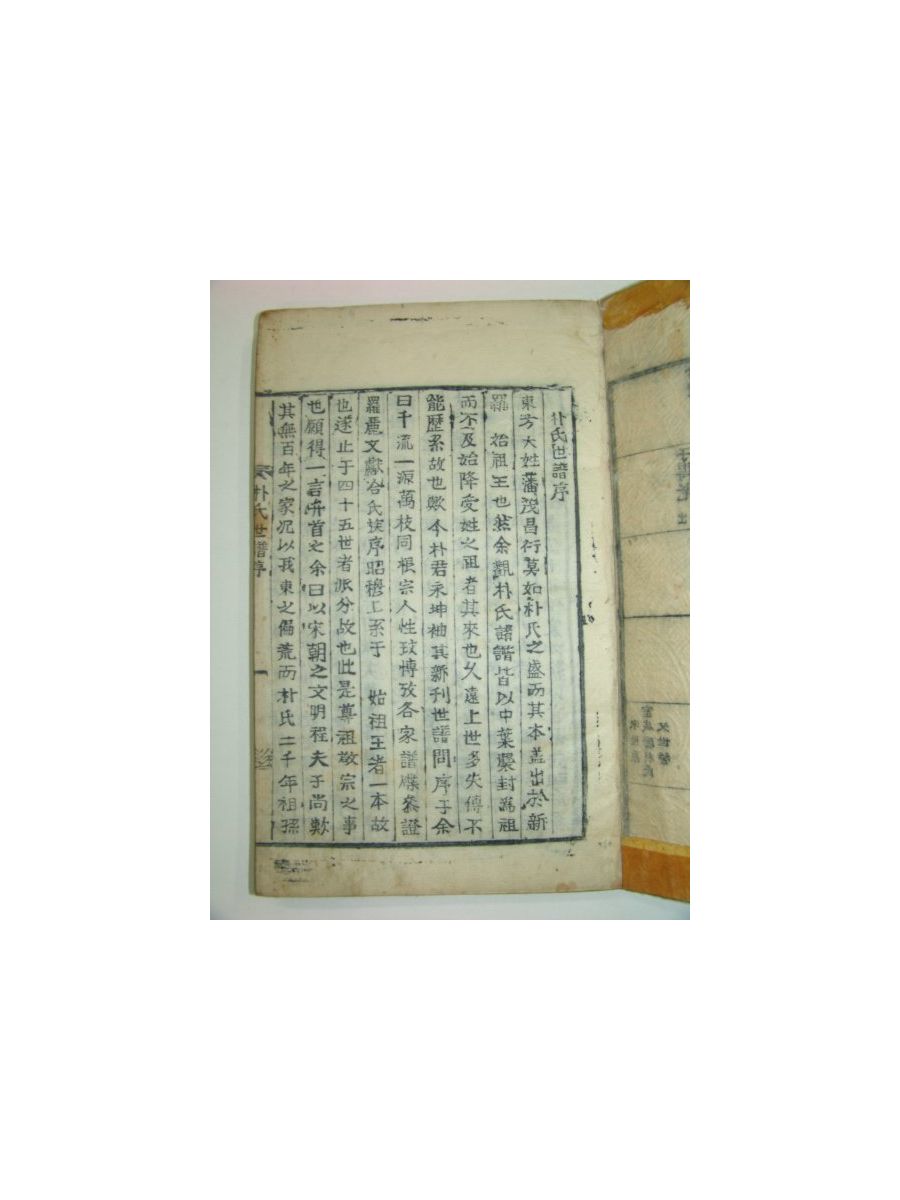 朴氏世譜序
東方大姓藩茂昌衍莫如朴氏之盛而其本盖出於新
羅 始祖王也然余觀朴氏諸譜皆以中葉襲封爲祖
而不及始降受姓之祖者其來也久遠上世多失傳不
能歷系故也歟今朴君永坤袖其新刊世譜問序于余
曰千流一源萬枝同根宗人性玟博攷各家譜牒叅證
羅麗文獻合氏族序昭穆上系于 始祖王者一本故
也遂止于四十五世者派分故也此是尊祖敬宗之事
也願得一言弁首之余曰以宋朝之文明程夫子尚歎
其無百年之家况以我東之偏荒而朴氏二千年祖孫
朴氏世譜序